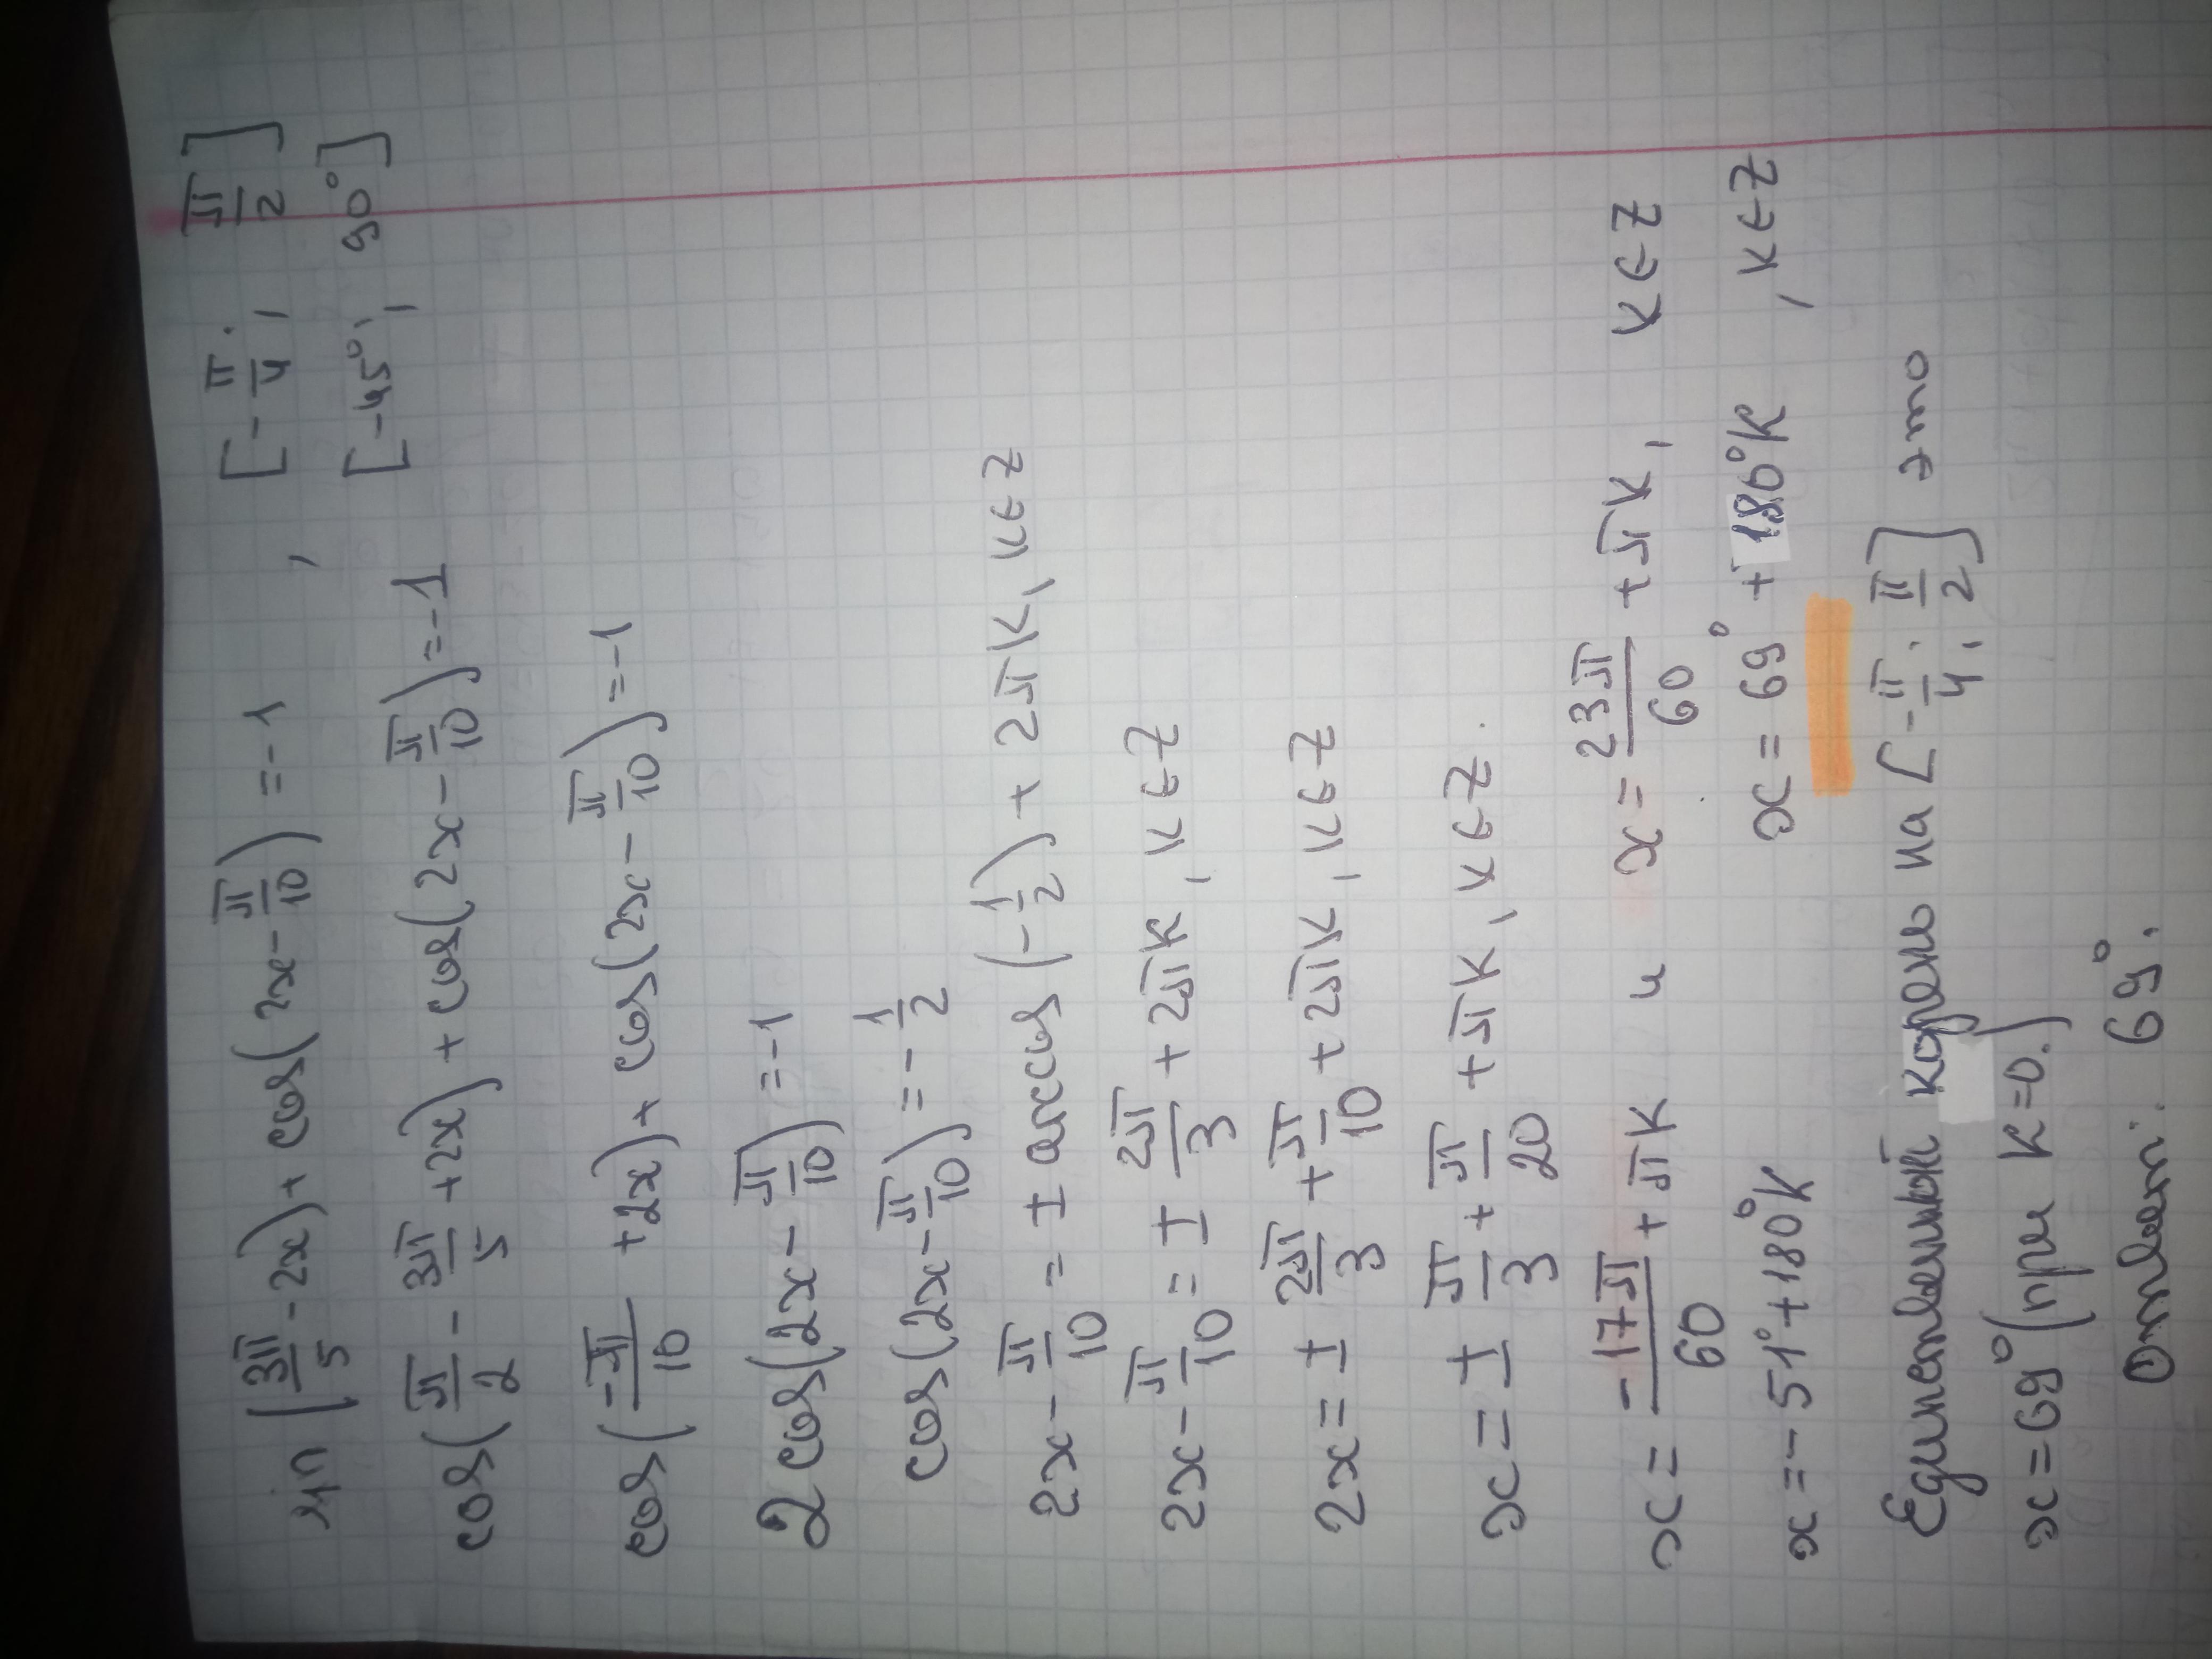 sin(3π/5 - 2x) + cos(2x - π/10) = -1 , [-π/4; π/2]
[-45°; 90°]
cos(π/2 - 3π/5 + 2x) + cos(2x - π/10) = -1
cos(-π/10 + 2x) + cos(2x - π/10) = -1
2cos(2x - π/10) = -1
cos(2x - π/10) = -1/2
2x - π/10 = ± arccos(-1/2) + 2πk, k∈Z
2x - π/10 = ± 2π/3 + 2πk, k∈Z
2x = ± 2π/3 + π/10 + 2πk, k∈Z
x = ± π/3 + π/20 + πk, k∈Z.
x = -17π/60 + πk и x = 23π/60 + πk, k∈Z
x = -51° + 180°k x = 69° + 180°k , k∈Z
Единственный корень на [-π/4; π/2] это
x = 69° (при k=0.)
Ответ: 69°.